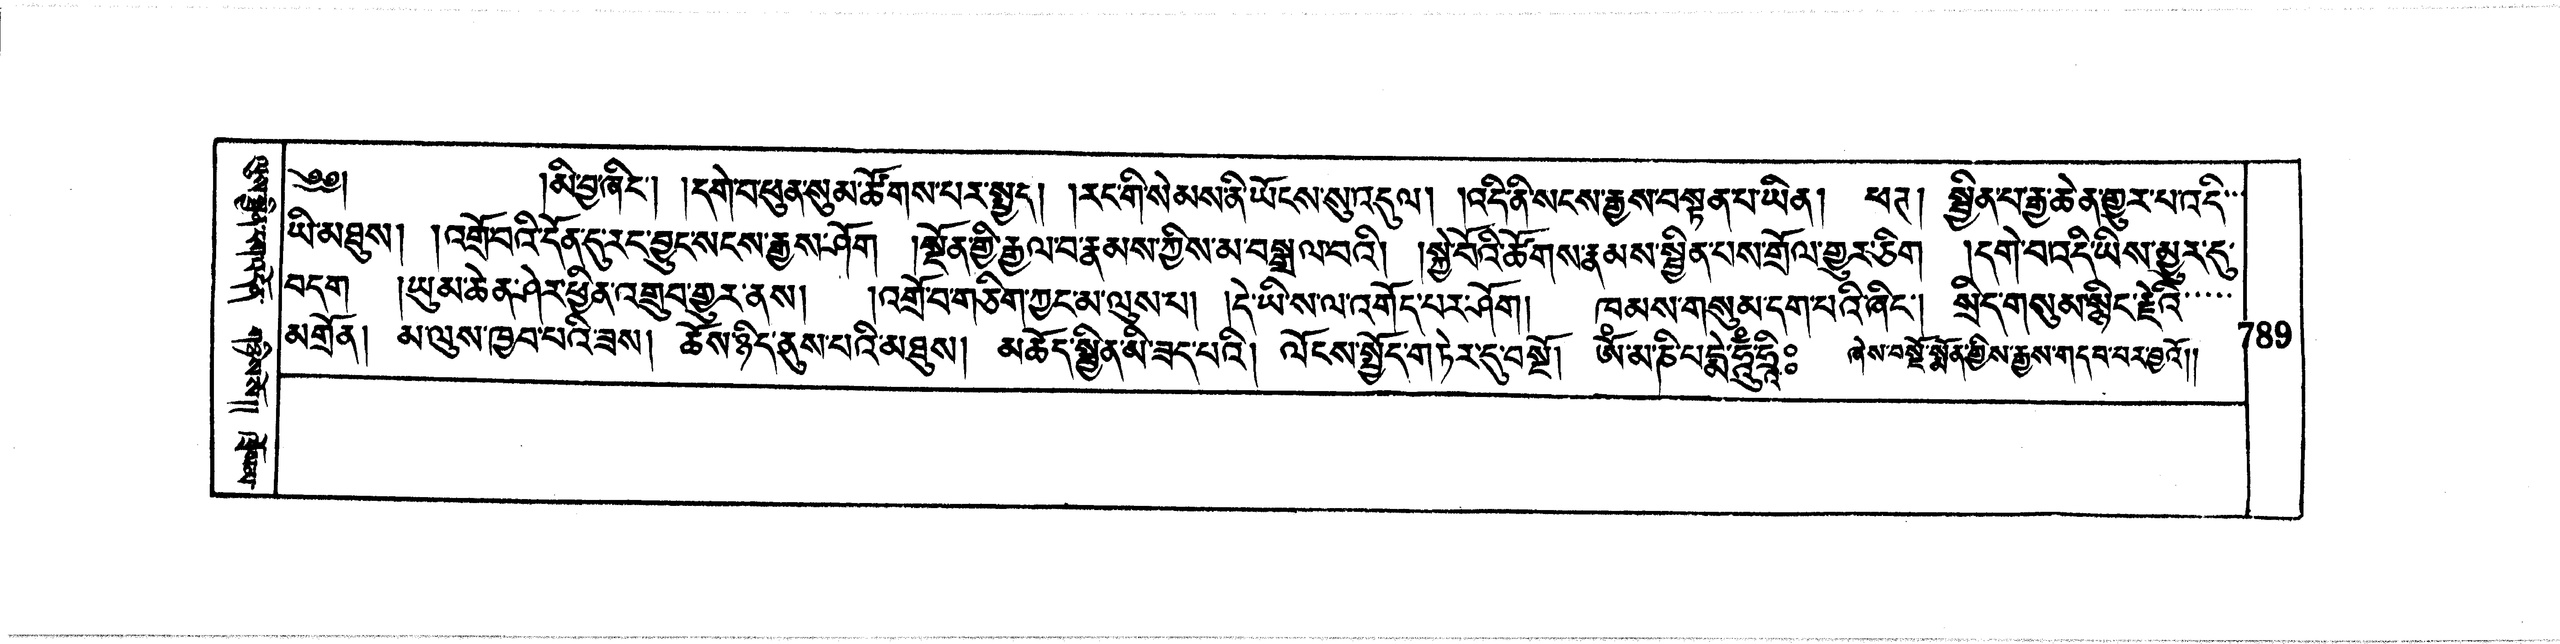 ༄༅། །མི་བྱ་ཞིང་། །དགེ་བ་ཕུན་སུམ་ཚོགས་པར་སྤྱད། །རང་གི་སེམས་ནི་ཡོངས་སུ་འདུལ། །འདི་ནི་སངས་རྒྱས་བསྟན་པ་ཡིན། ཕཊ། སྦྱིན་པ་རྒྱ་ཆེན་གྱུར་པ་འདི་
ཡི་མཐུས། །འགྲོ་བའི་དོན་དུ་རང་བྱུང་སངས་རྒྱས་ཤོག །སྔོན་གྱི་རྒྱལ་བ་རྣམས་ཀྱིས་མ་བསྒྲལ་བའི། །སྐྱེ་བོའི་ཚོགས་རྣམས་སྦྱིན་པས་གྲོལ་གྱུར་ཅིག །དགེ་བ་འདི་ཡིས་མྱུར་དུ་
བདག །ཡུམ་ཆེན་ཤེར་ཕྱིན་འགྲུབ་གྱུར་ནས། །འགྲོ་བ་གཅིག་ཀྱང་མ་ལུས་པ། །དེ་ཡིས་ལ་འགོད་པར་ཤོག། ཁམས་གསུམ་དག་པའི་ཞིང་། སྲིད་གསུམ་སྙིང་རྗེའི་
མགྲོན། མ་ལུས་ཁྱབ་པའི་ཟས། ཆོས་ཉིད་ནུས་པའི་མཐུས། མཆོད་སྦྱིན་མི་ཟད་པའི། ལོངས་སྤྱོད་གཏེར་དུ་བསྔོ། ཨོཾ་མ་ཎི་པདྨེ་ཧཱུྃ་ཧྲཱིཿ ཞེས་བསྔོ་སྨོན་གྱིས་རྒྱས་གདབ་པར་བྱའོ།།
789